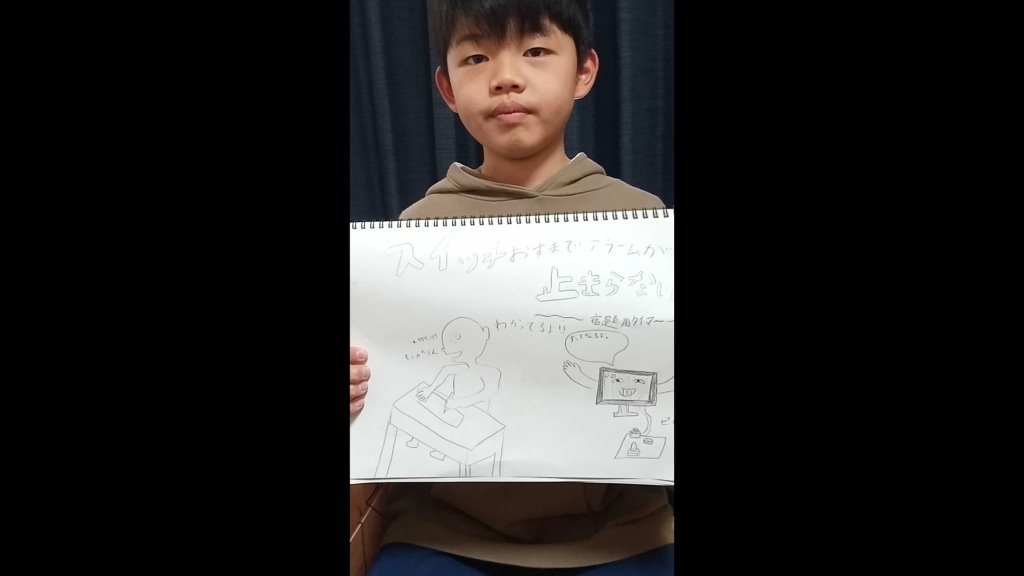 スイッチおすまでアラームが
止まらない
宿題用タイマー
わかってるよ!!